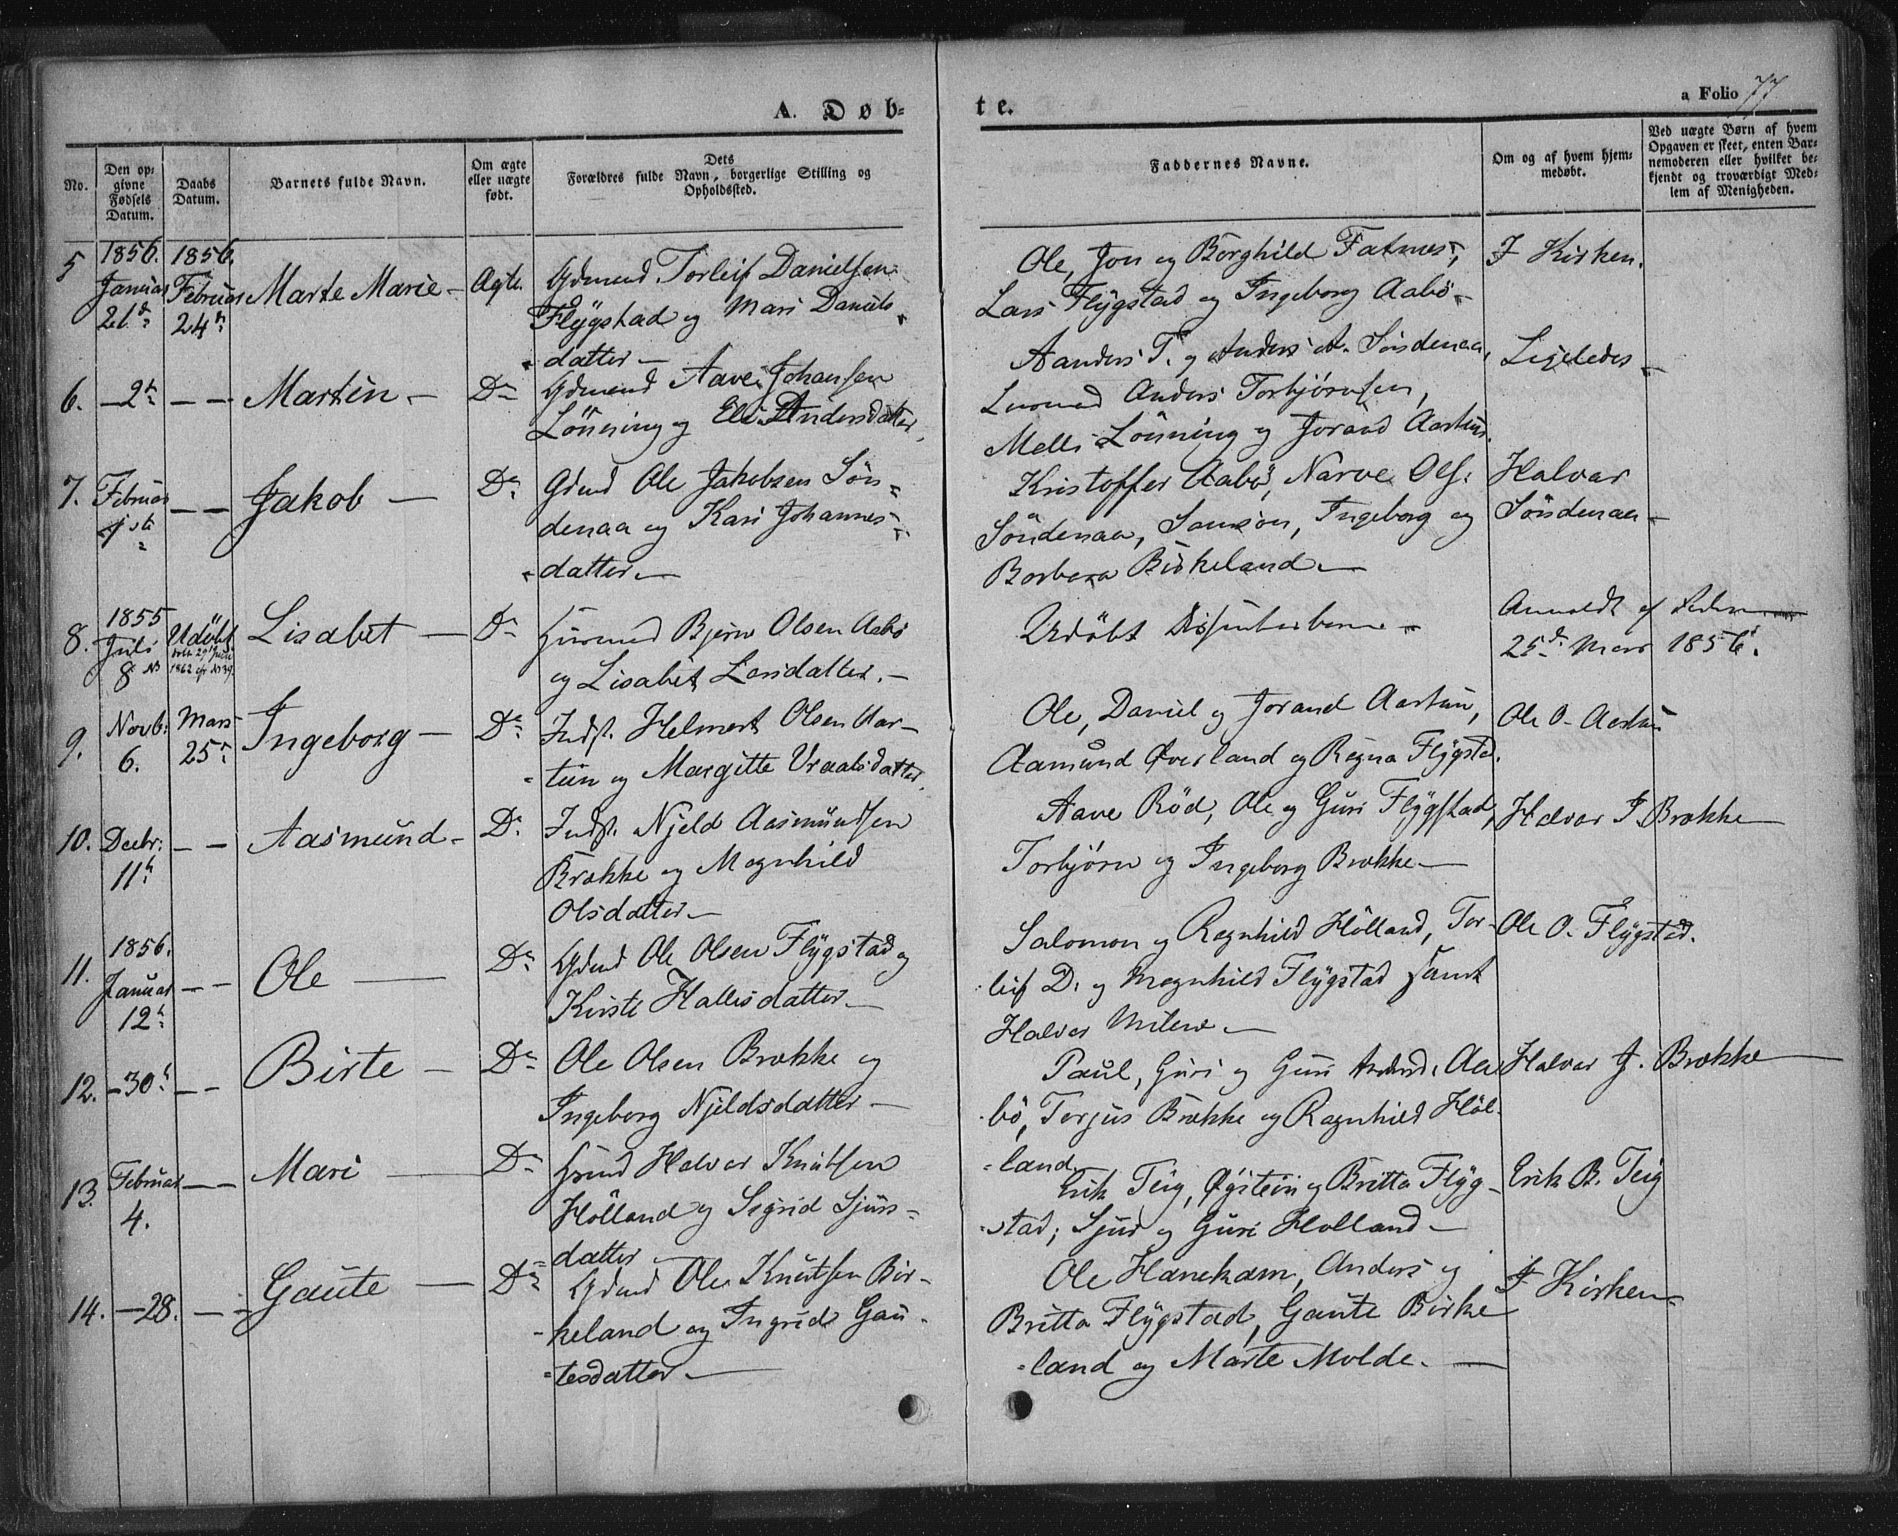 A. Døb-
te.
a Folio 77
No.
Den op-
givne
Fødsels
Datum.
Daabs
Datum.
Barnets fulde Navn.
Om ægte
eller uægte
født.
Dets
Forældres fulde Navn, borgerlige Stilling og
Opholdssted.
Faddernes Navne.
Om og af hvem hjem-
medøbt.
Ved uægte Børn af hvem
Opgaven er skeet, enten Bar-
nemoderen eller hvilket be-
kjendt og troværdigt Med-
lem af Menigheden.
5
1856.
Januar
21d
1856.
Februar
24n
Marte Marie —
Agte.
Gdmend Torleif Danielsen
Flÿgstad og Mari Daniels
datter —
Ole, Jon og Borghild Fatnes,
Lars Flÿgstad og Ingeborg Aabö —
I Kirken.
6.
— 2n
— —
Martin —
Do
Gdmend Aave Johansen
Lönning og Eli Andersdatter,
Aanders T. og Anders A. Söndenaa,
Anders Torbjörnsen,
Lönning og Jorand Aartun.
Ligeledes —
7.
Februar
1ste
— —
Jakob —
Do
Gdmd Ole Jakobsen Sön-
denaa og Kari Johannes-
datter —
Kristoffer Aabö, Narve Ols.
Söndenaa, Samson, Ingeborg og
Barbara Birkeland —
Halvar
Söndenaa —
8.
1855
Juli
8
Udöbt
döbt 29 Juni
1862 efr No 39.
Lisabet —
Do
Husmd Bjørn Olsen Aabö
og Lisabet Larsdatter. —
Udöbt Dissenterbarn —
Anmeldt af Faderen
25d Mars 1856.
9.
Novb.
6.
Mars
25n
Ingeborg —
Do
Indst. Helmert Olsen Aar-
tun og Margitte Vraalsdatter,
Ole, Daniel og Jorand Aartun,
Aamund Øverland og Ragna Flÿgstad.
Ole O. Aartun
10.
Decbr.
11n
— —
Aasmund —
Do
Indst. Njeld Aasmundsen
Brække og Magnhild
Olsdatter —
Aave Röd, Ole og Guri Flÿgstad,
Torbjörn og Ingeborg Brække —
Halvar J Brække
11.
1856.
Januar
12n
— —
Ole —
Do
Gdmd Ole Olsen Flÿgstad og
Kirsti Hallesdatter —
Salomon og Ragnhild Hölland, Tor-
leif D. og Magnhild Flÿgstad samt
Halvor —
Ole O. Flÿgstad.
12.
— 30n
— —
Birte —
Do
Ole Olsen Brække og
Ingeborg Njeldsdatter —
Paul, Guri og Guri Aa-
bö, Torjus Brække og Ragnhild Höl-
land.
Halvar J. Brække
13.
Februar
4.
— —
Mari —
Do
Gdmd Halvar Knutsen
Hölland og Sigrid Sjurs-
datter —
Erik Teig, Øistein og Britta Flÿg-
stad, Sjur og Guri Holland —
Erik B. Teig
14.
— 28.
— —
Gaute —
Do
Gdmd Ole Knutsen Bir-
keland og Ingrid Gau-
tesdatter —
Ole Hanekam, Anders og
Britta Flÿgstad, Gaute Birke
land og Marte Molde. —
I Kirken